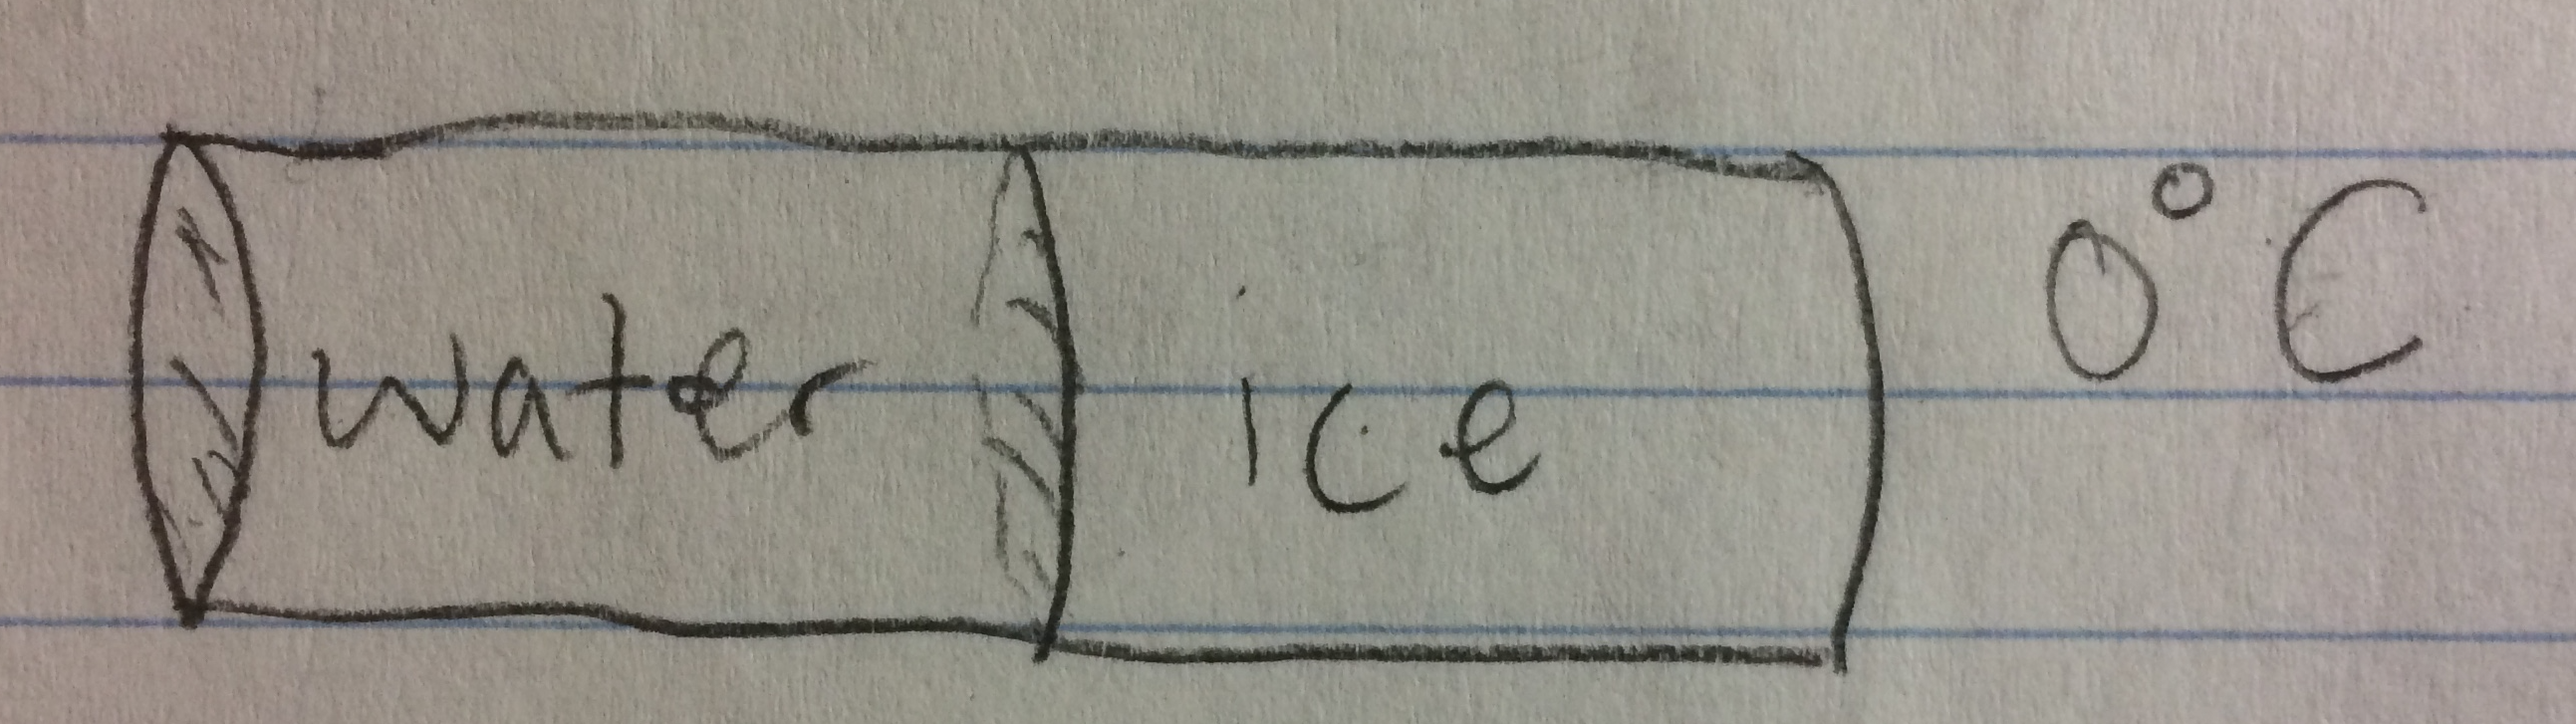 water ice 0°C